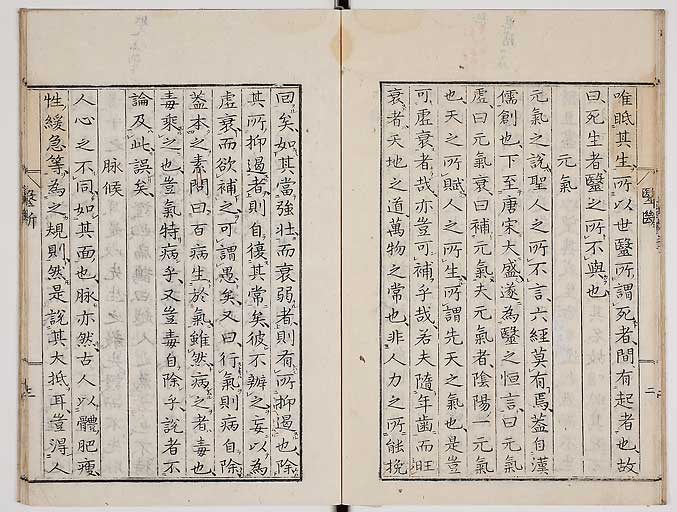 唯眂其生所以世毉所謂死者間有起者也故
曰死生者毉之所不與也
元氣
元氣之說聖人之所不言六經莫有焉葢自漢
儒創也下至唐宋大盛遂為毉之恒言曰元氣
虛曰元氣衰曰補元氣夫元氣者陰陽一元氣
也天之所賦人之所生所謂先天之氣也是豈
可虛衰哉亦豈可補乎哉若夫隨年齒而旺
衰者天地之道萬物之常也非人力之所能挽
毉斷
二
回矣如其當強壯而衰弱者則有所抑遏也除
其所抑遏者則自復其常矣彼不辨之妄以為
虛衰而欲補之可謂愚矣又曰行氣則病自除
葢本之素問曰百病生於氣雖然病之者毒也
毒乘之也豈氣特病乎又豈毒自除乎說者不
論及此誤矣
脉候
人心之不同如其面也脉亦然古人以體肥瘦
性緩急等為之規則然是說其大抵耳豈淂人
毉斷